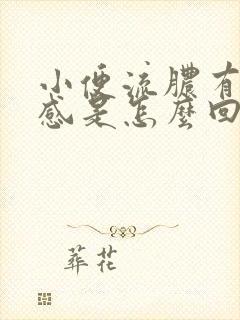 小便流膿有
感是怎麼回
葬花